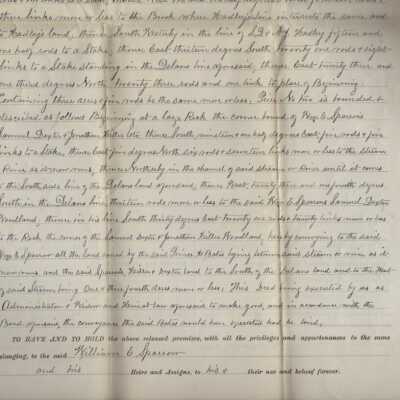 links more or less to the Brook where Hadley's line intersects the same and
to Hadley's land, thence South Westerly in the line of Hadley fifteen and
one half rods to a Stake, thence East thirteen degrees South twenty one rods & eight
links to a Stake standing in the Deland line aforesaid, thence East twenty three and
one third degrees North twenty three rods and one link to place of Beginning
Containing three acres & four rods be the same more or less. Piece No two is bounded &
described as follows Beginning at a large Rock the corner bound of Wm C Sparrow
Samuel Dexter & Jonathan Fuller lots thence South nineteen & one half degrees East five rods & five
links to a Stake, thence East five degrees North six rods & seventeen links more or less to the Stream
or River as it now runs, thence Northerly in the channel of said Stream or River until it comes
to the South side line of the Deland land aforesaid, thence West, twenty three and one fourth degrees
South in the Deland line thirteen rods more or less to the said Wm C Sparrow Samuel Dexter
Woodland, thence in his line South thirty degrees East twenty one rods & twenty links more or less
to the Rock the corner of the Samuel Dexter & Jonathan Fuller Woodland, hereby conveying to the said
Wm C Sparrow all the land owned by the said Prince H Bates lying between said Stream or River as it
now runs, and the said Sparrow, Fuller & Dexter land to the South of the Deland land and to the West
of said Stream being One & three fourth acres more or less. This Deed being executed by us as
Administrator & Widow and Heirs at law aforesaid to make good, and in accordance with the
Bond aforesaid, the conveyance the said Bates would have executed had he lived.
TO HAVE AND TO HOLD the above released premises, with all the privileges and appurtenances to the same
belonging, to the said William C Sparrow
and his Heirs and Assigns, to his & their use and behoof forever.